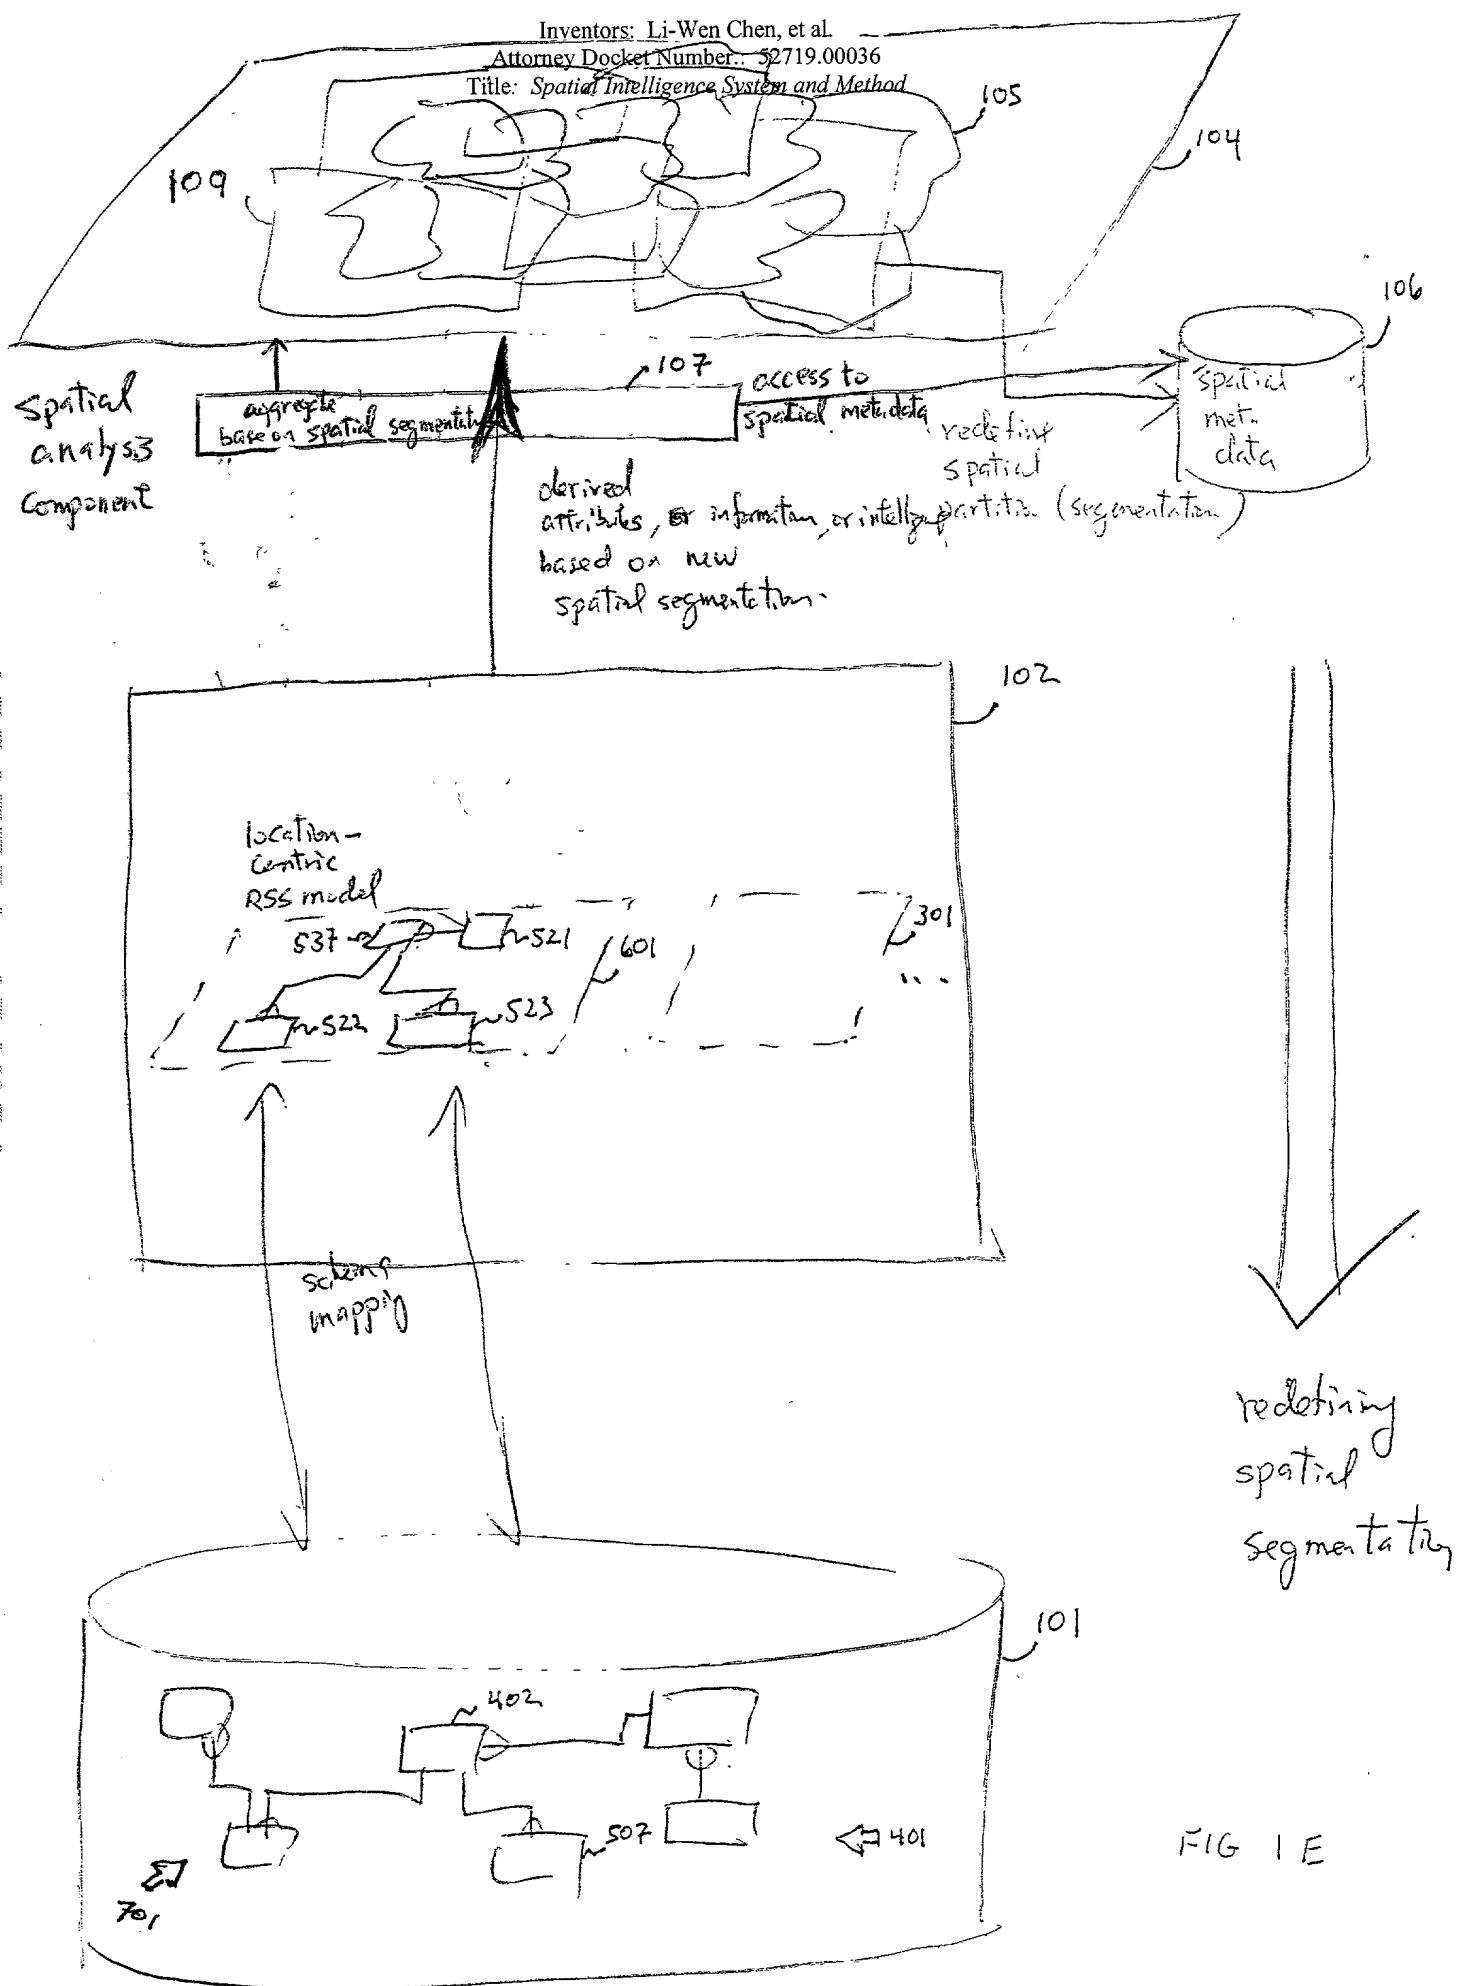 Inventors: Li-Wen Chen, et al.
Attorney Docket Number.: 52719.00036
Title: Spatial Intelligence System and Method
105
104
109
106
107
spatial
analysis
component
aggregate
base on spatial segmentation
access to
spatial metadata
redefine
spatial
partition (segmentation)
spatial
met.
data
derived
attributes, or information, or
based on new
spatial segmentation.
102
location-
centric
RSS model
537
521
601
301
...
522
523
schema
mapping
redefining
spatial
segmentation
101
402
507
401
701
FIG 1E